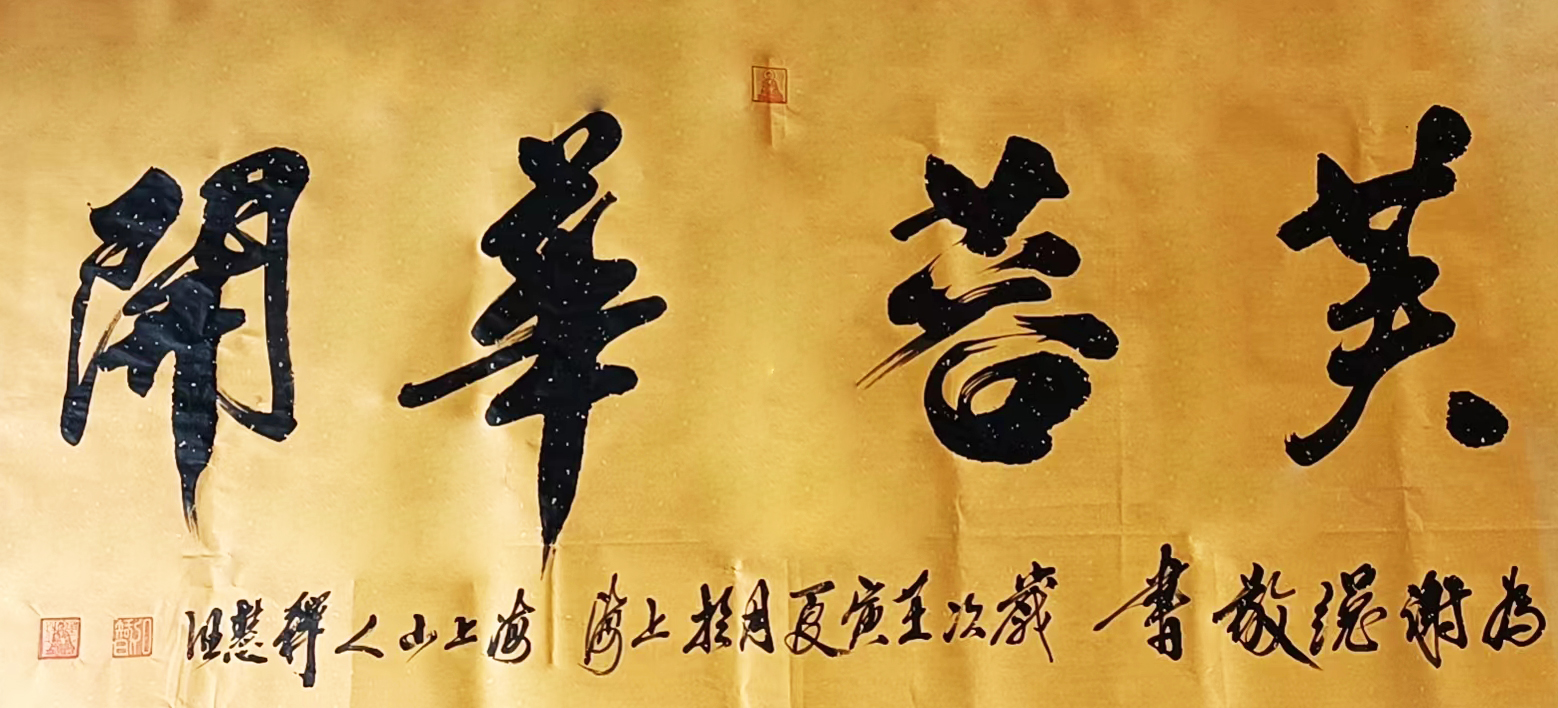 芙蓉華開
為謝總敬書 歲次壬寅夏月於上海 海上山人釋慧